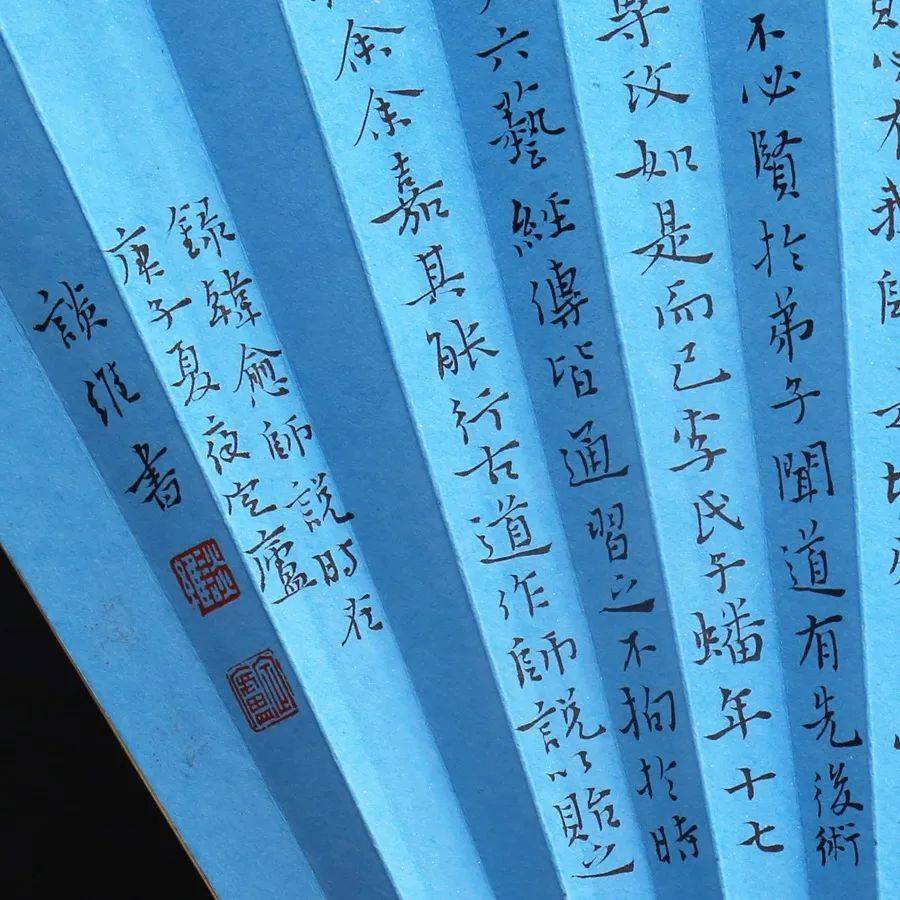 必有我師
不必賢於弟子聞道有先後術
專攻如是而已李氏子蟠年十七
六藝經傳皆通習之不拘於時
余余嘉其能行古道作師說以貽之
錄韓愈師說時在
庚子夏夜廬
談維書